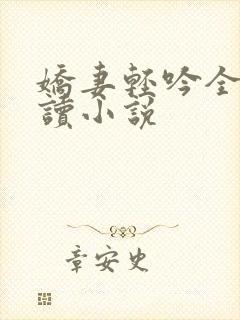 嬌妻輕吟全
讀小說
章安史